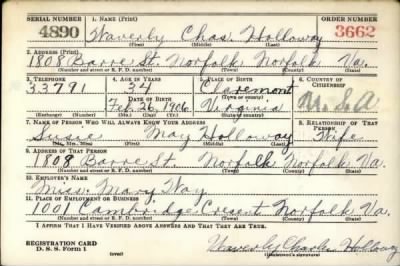 SERIAL NUMBER 1. NAME (Print) ORDER NUMBER
4890 Waverly Chas. Holloway 3662
(First) (Middle) (Last)
2. ADDRESS (Print)
1808 Barre St. Norfolk Norfolk Va.
(Number and street or R. F. D. number) (Town) (County) (State)
3. TELEPHONE 4. AGE IN YEARS 5. PLACE OF BIRTH 6. COUNTRY OF CITIZENSHIP
33791 34 Claremont
DATE OF BIRTH (Town or county)
Feb. 26, 1906 Virginia U.S.A
(Exchange) (Number) (Mo.) (Day) (Yr.) (State or country)
7. NAME OF PERSON WHO WILL ALWAYS KNOW YOUR ADDRESS 8. RELATIONSHIP OF THAT PERSON
Susie May Holloway Wife
(Mr., Mrs., Miss) (First) (Middle) (Last)
9. ADDRESS OF THAT PERSON
1808 Barre St. Norfolk Norfolk Va.
(Number and street or R. F. D. number) (Town) (County) (State)
10. EMPLOYER'S NAME
Miss. Mary Way
11. PLACE OF EMPLOYMENT OR BUSINESS
1001 Cambridge Cresent Norfolk, Va.
(Number and street or R. F. D. number) (Town) (County) (State)
I AFFIRM THAT I HAVE VERIFIED ABOVE ANSWERS AND THAT THEY ARE TRUE.
REGISTRATION CARD
D. S. S. Form 1 (over) Waverly Charles Holloway
(Registrant's signature)